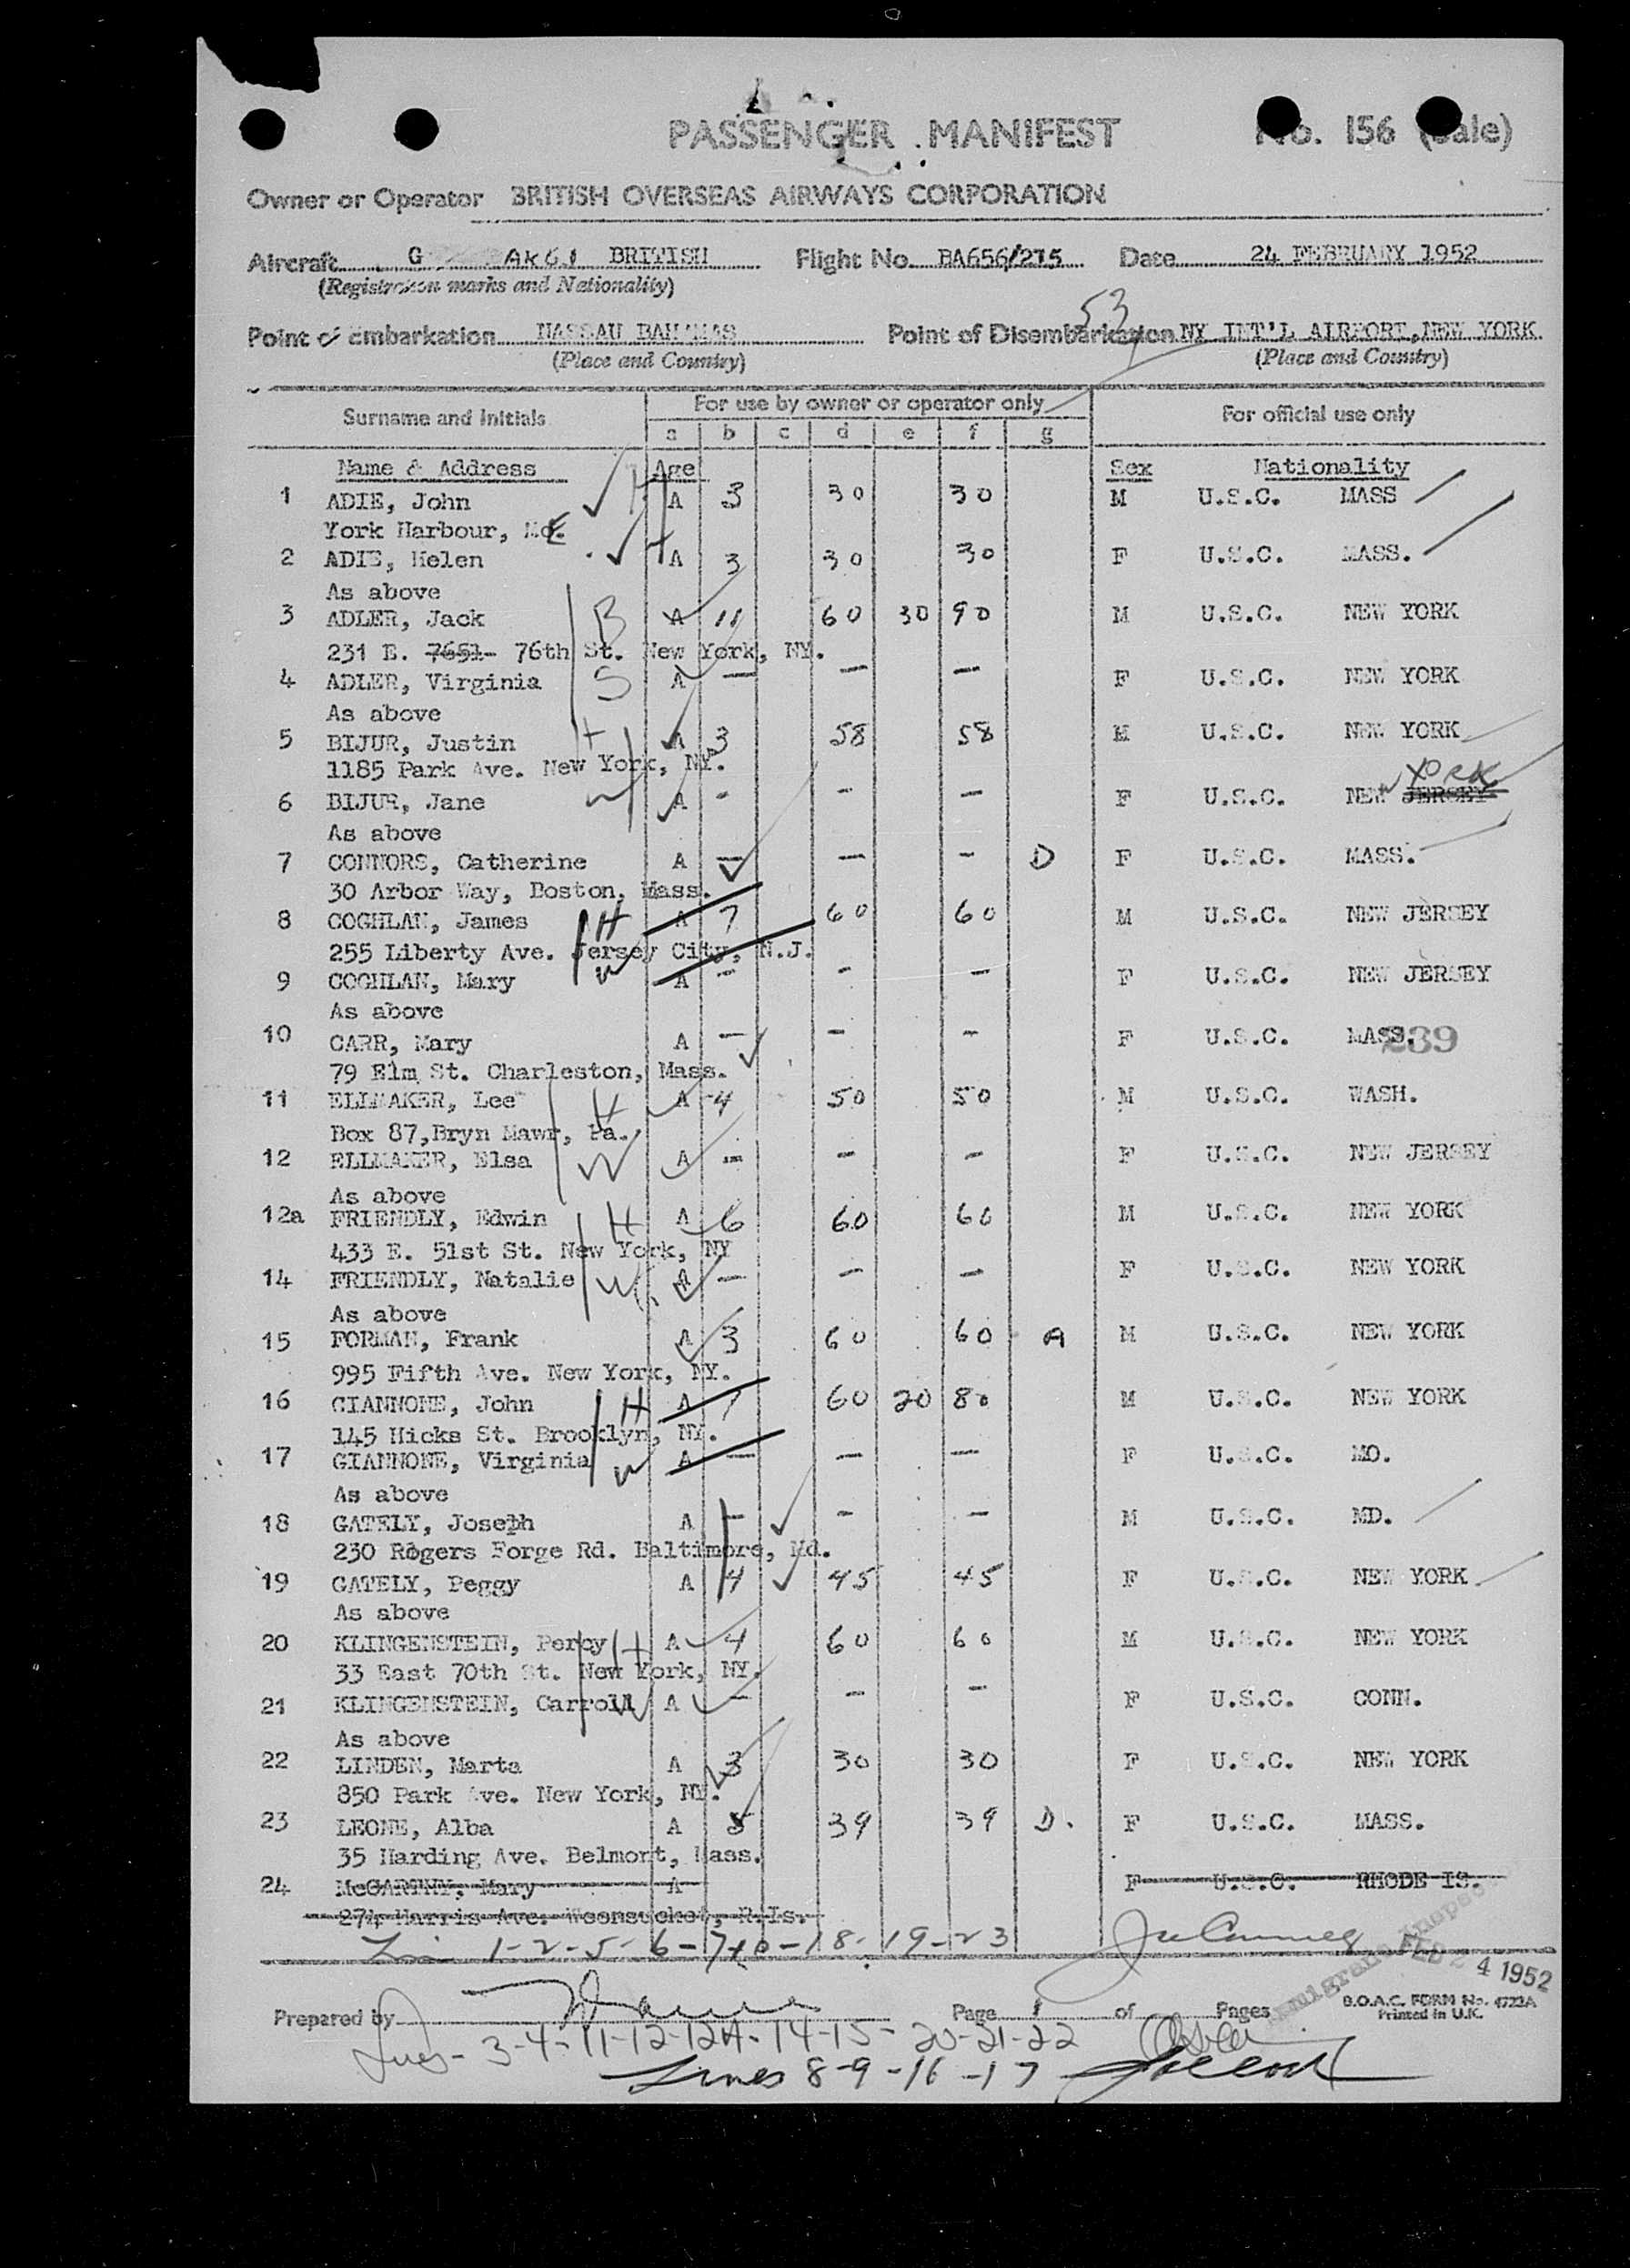 PASSENGER MANIFEST No. 156 (Bale)
Owner or Operator BRITISH OVERSEAS AIRWAYS CORPORATION
Aircraft G BRITISH Flight No. BA656/275 Date 24 FEBRUARY 1952
(Registration marks and Nationality)
53
Point of Embarkation NASSAU BAHAMAS Point of Disembarkation NY INT'L AIRPORT, NEW YORK
(Place and Country) (Place and Country)
Surname and Initials For use by owner or operator only For official use only
a b c d e f g
Name & Address Age Sex Nationality
1 ADIE, John H A 3 30 30 M U.S.C. MASS
York Harbour, Me.
2 ADIE, Helen A 3 30 30 F U.S.C. MASS.
As above
3 ADLER, Jack B A 11 60 30 90 M U.S.C. NEW YORK
231 E. 7651- 76th St. New York, NY.
4 ADLER, Virginia S A — — — F U.S.C. NEW YORK
As above
5 BIJUR, Justin H A 3 58 58 M U.S.C. NEW YORK
1185 Park Ave. New York, NY.
6 BIJUR, Jane W A - - - F U.S.C. NEW JERSEY YORK
As above
7 CONNORS, Catherine A — — - D F U.S.C. MASS.
30 Arbor Way, Boston, Mass.
8 COGHLAN, James H A 7 60 60 M U.S.C. NEW JERSEY
255 Liberty Ave. Jersey City, N.J.
9 COGHLAN, Mary W A - - - F U.S.C. NEW JERSEY
As above
10 CARR, Mary A — - - F U.S.C. MASS. 239
79 Elm St. Charleston, Mass.
11 ELLMAKER, Lee H A 4 50 50 M U.S.C. WASH.
Box 87,Bryn Mawr, Pa.
12 ELLMAKER, Elsa W A - - - F U.S.C. NEW JERSEY
As above
12a FRIENDLY, Edwin H A 6 60 60 M U.S.C. NEW YORK
433 E. 51st St. New York, NY
14 FRIENDLY, Natalie W A — — — F U.S.C. NEW YORK
As above
15 FORMAN, Frank A 3 60 60 A M U.S.C. NEW YORK
995 Fifth Ave. New York, NY.
16 GIANNONE, John H A 7 60 20 80 M U.S.C. NEW YORK
145 Hicks St. Brooklyn, NY.
17 GIANNONE, Virginia W A — — — F U.S.C. MO.
As above
18 GATELY, Joseph A - - - M U.S.C. MD.
230 Rogers Forge Rd. Baltimore, Md.
19 GATELY, Peggy A 4 45 45 F U.S.C. NEW YORK
As above
20 KLINGENSTEIN, Percy H A 4 60 60 M U.S.C. NEW YORK
33 East 70th St. New York, NY.
21 KLINGENSTEIN, Carroll W A — — — F U.S.C. CONN.
As above
22 LINDEN, Marta A 3 30 30 F U.S.C. NEW YORK
850 Park Ave. New York, NY.
23 LEONE, Alba A 5 39 39 D. F U.S.C. MASS.
35 Harding Ave. Belmont, Mass.
24 McCARTHY, Mary A F U.S.C. RHODE IS.
274 Harris Ave. Woonsocket, R.Is.
1-2-5-6-7-10-18-19-23
FEB 24 1952
Prepared by Page 1 of Pages B.O.A.C. FORM No. 4722A
Printed in U.K.
Lines- 3-4-11-12-12A-14-15-20-21-22
Lines 8-9-16-17